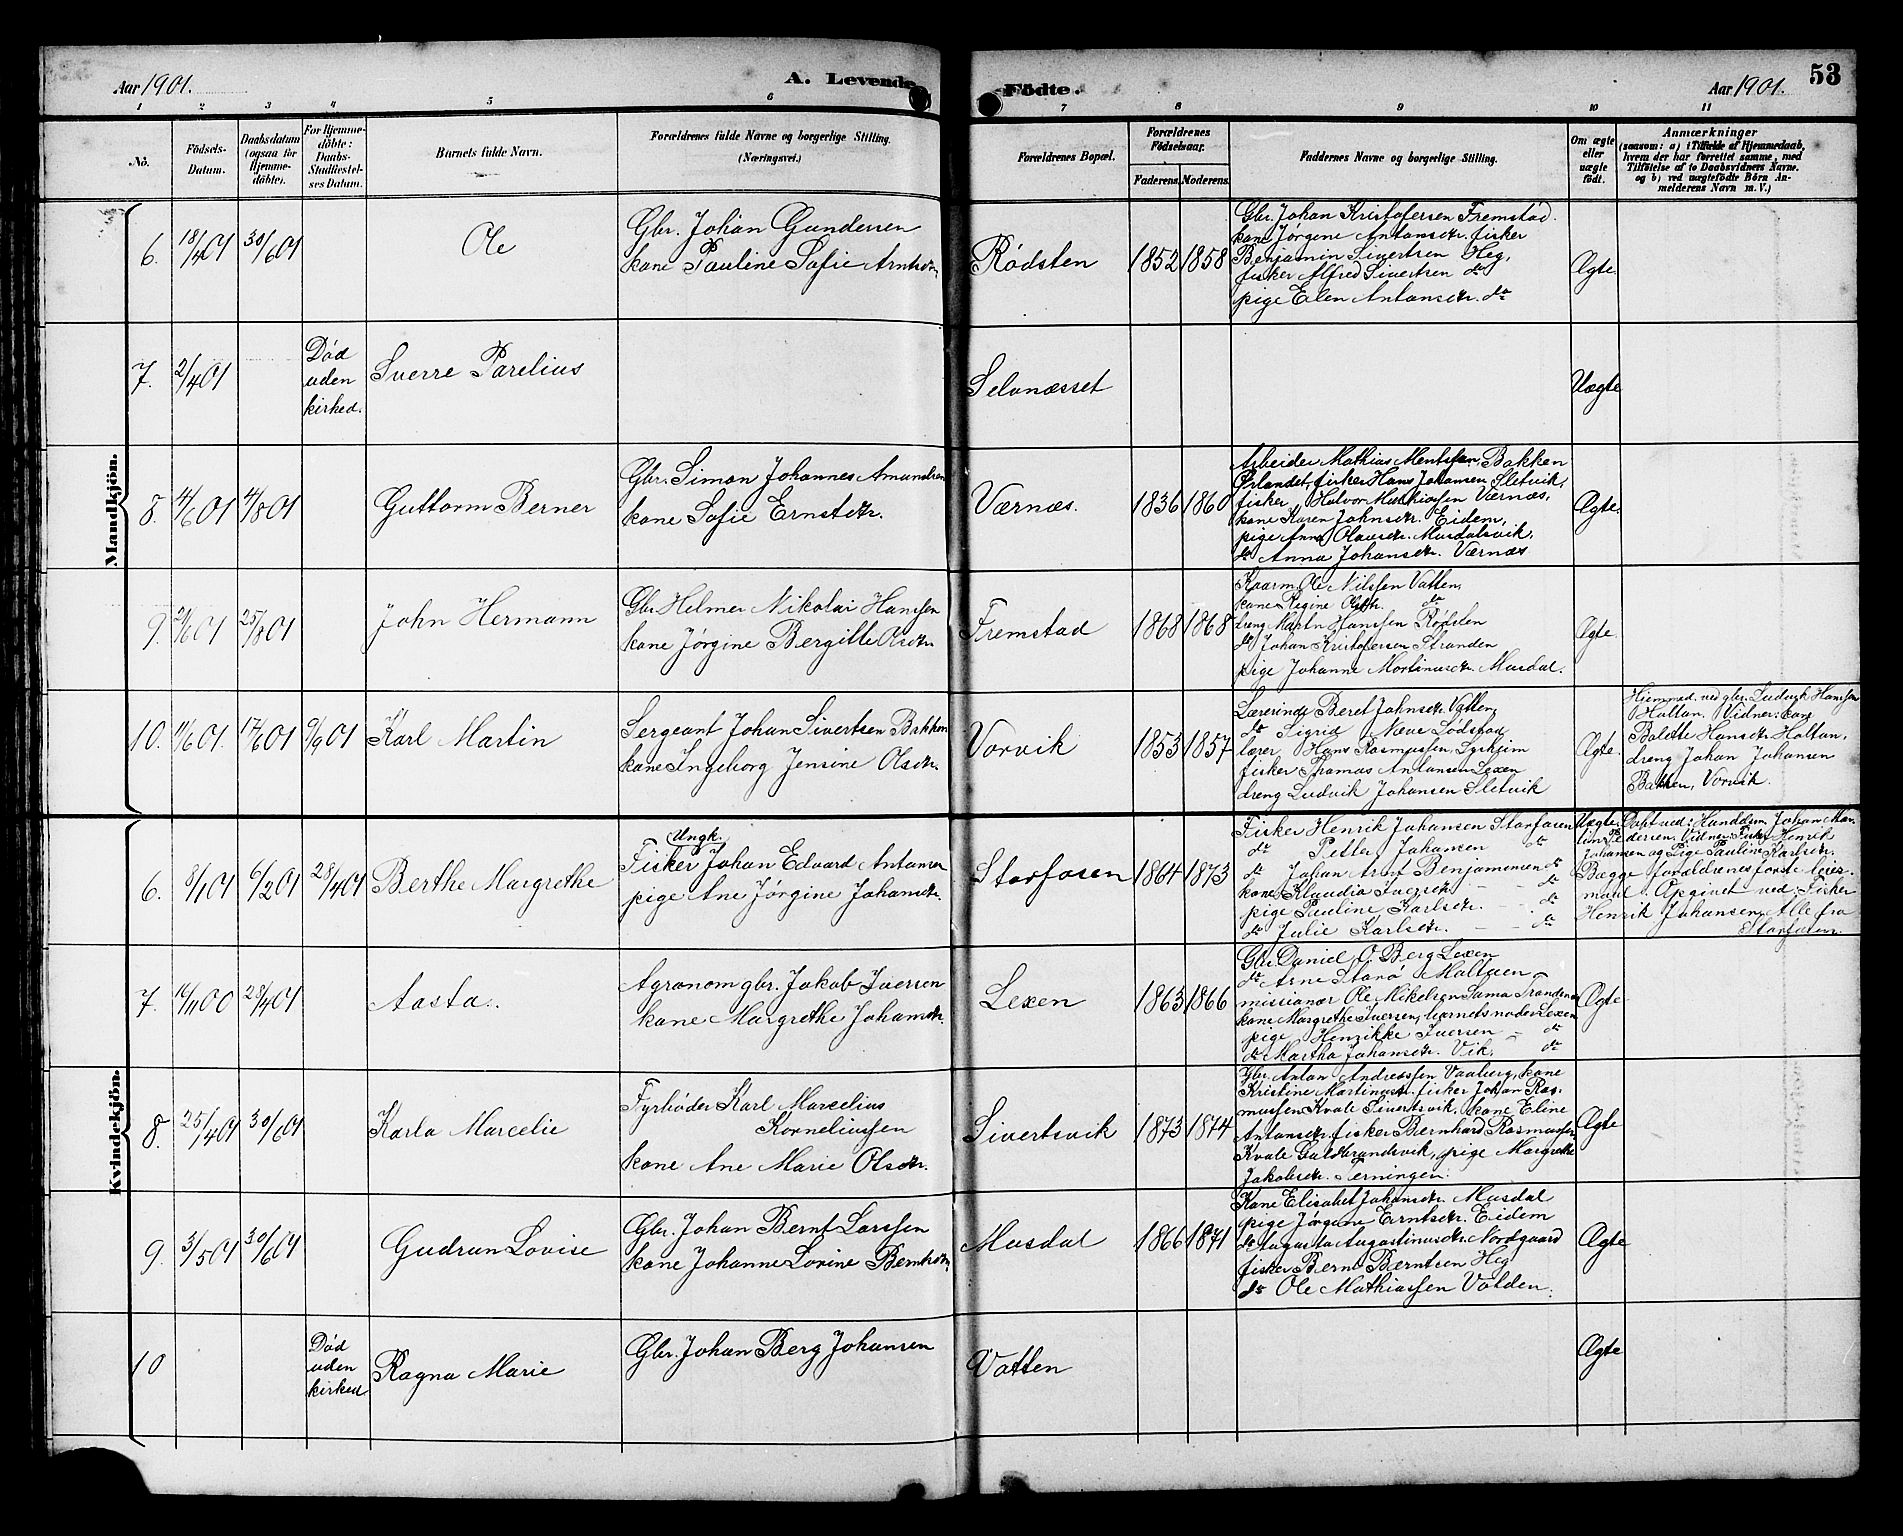 Aar 1901.
A. Levende
Födte.
Aar 1901.
53
1 2 3 4 5 6 7 8 9 10 11
No.
Födsels-
Datum.
Daabsdatum
(ogsaa for
Hjemme-
döbte).
For Hjemme-
döbte:
Daabs-
Stadfæstel-
ses Datum.
Barnets fulde Navn.
Forældrenes fulde Navne og borgerlige Stilling.
(Næringsvei.)
Forældrenes Bopæl.
Forældrenes
Födselsaar.
Faderens. Moderens.
Faddernes Navne og borgerlige Stilling.
Om ægte
eller
uægte
födt.
Anmærkninger
(saasom: a) i Tilfælde af Hjemmedaab,
hvem der har forrettet samme, med
Tilföielse af to Daabsvidners Navne.
og b) ved uægtefödte Börn An-
melderens Navn m. V.)
Mandkjön.
6. 18/4 01 30/6 01
Ole
Gbr. Johan Gundersen
kone Pauline Sofie Arntsdtr.
Rødsten
1852 1858
Gbr. Johan Kristofersen Fremstad.
kone Jørgine Antonsdtr. fisker
Benjamin Sivertsen Heg,
fisker Alfred Sivertsen do
pige Elen Antonsdtr. do
Ægte.
7. 2/4 01
Død
uden
kirked.
Sverre Parelius
Selvnæsset
Uægte
8. 4/6 01 4/8 01
Guttorm Berner
Gbr. Simon Johannes Amundsen
kone Sofie Ernstdtr.
Værnæs.
1836 1860
Arbeider Mathias Mentsen, Bakken
Ørlandet, fisker Hans Johansen Sletvik,
fisker Halvor Mathiassen Værnæs,
kone Karen Johnsdtr. Eidem,
pige Anna Olausdtr. Musdalsvik,
do Anna Johansdtr. Værnæs
Ægte.
9. 2/6 01 25/8 01
John Hermann
Gbr. Helmer Nikolai Hansen
kone Jørgine Bergitte Olsdtr.
Fremstad
1868 1868
Kaarm. Ole Nilssen Vatten,
kone Regine do
dreng Martin Hanssen Rødsten
do Johan Kristofersen Stranden
pige Johanna Martinusdtr. Musdal.
Ægte.
10. 11/6 01. 17/6 01 9/9 01
Karl Martin
Sergeant Johan Sivertsen Bakken
kone Ingeborg Jensine Olsdtr.
Vorvik
1853 1857
Lærerinde Beret Johnsdtr. Vatten,
do Sigrid Neve
lærer Hans Rasmussen, Lysheim
fisker Thomas Antonsen Lexen
dreng Ludvik Johansen Sletvik
Ægte.
Hjemmed. ved gbr. Ludvik Hanssen
Holtan. Vidner: kone
Balette Hansdtr. Holtan,
dreng Johan Johansen
Bakken, Vorvik.
Kvindekjön.
6. 8/1 01 6/2 01 28/4 01
Berthe Margrethe
Ungk.
Fisker Johan Edvard Antonsen
pige Ane Jørgine Johansdtr.
Storfosen
1864 1873
Fisker Henrik Johansen Storfosen
do Petter Johansen do
do Johan Arnt Benjaminsen do
kone Klaudia Iversdtr. do
pige Pauline Karlsdtr. do
do Julie Karlsdtr. do
Uægte. Døpt ved: Handelsm. Johan Mar-
tin Pedersen. Vidner: Fisker Henrik
Johansen og Pige Pauline Karlsdtr.
Begge forældrenes første Leier-
maal. Opgivet ved: Fisker
Henrik Johansen. Alle fra
Storfosen.
7. 16/11 00 28/4 01
Aasta.
Agronom gbr. Jakob Iversen
kone Margrethe Johansdtr.
Lexen
1863 1866
Gbr. Daniel O. Berg Lexen
do Arne Storø Moltuen
missionær Ole Mikelsen Sama Tranden
kone Margrethe Iversen, barnets moder Lexen
pige Henrikke Iversen do
do Martha Johansdtr. Vik. do
Ægte
8. 25/4 01 30/6 01
Karla Marcelie
Fyrbøder Karl Marcelius
Korneliussen
kone Ane Marie Olsdtr.
Sivertsvik
1873 1874
Gbr. Anton Andreassen Vaaberg, kone
Kristine Martinusdtr. fisker Johan Ras-
mussen Kvale Sivertsvik, kone Eline
Antonsdtr. fisker Bernhard Rasmussen
Kvale Guldbrandsvik, pige Margrethe
Jakobsdtr. Terningen.
Ægte
9. 3/5 01 30/6 01
Gudrun Lovise
Gbr. Johan Bernt Larssen
kone Johanne Lovine Berntsdtr.
Musdal
1866 1871
Kone Elisabet Johansdtr. Musdal
pige Jørgine Erntsdtr. Eidem
do Augusta Augustinusdtr. Nordgaard
fisker Bernt Berntsen Heg
do Ole Mathiassen Volden.
Ægte
10
Død
uden
kirked
Ragna Marie
Gbr. Johan Berg Johansen
Vatten
Ægte